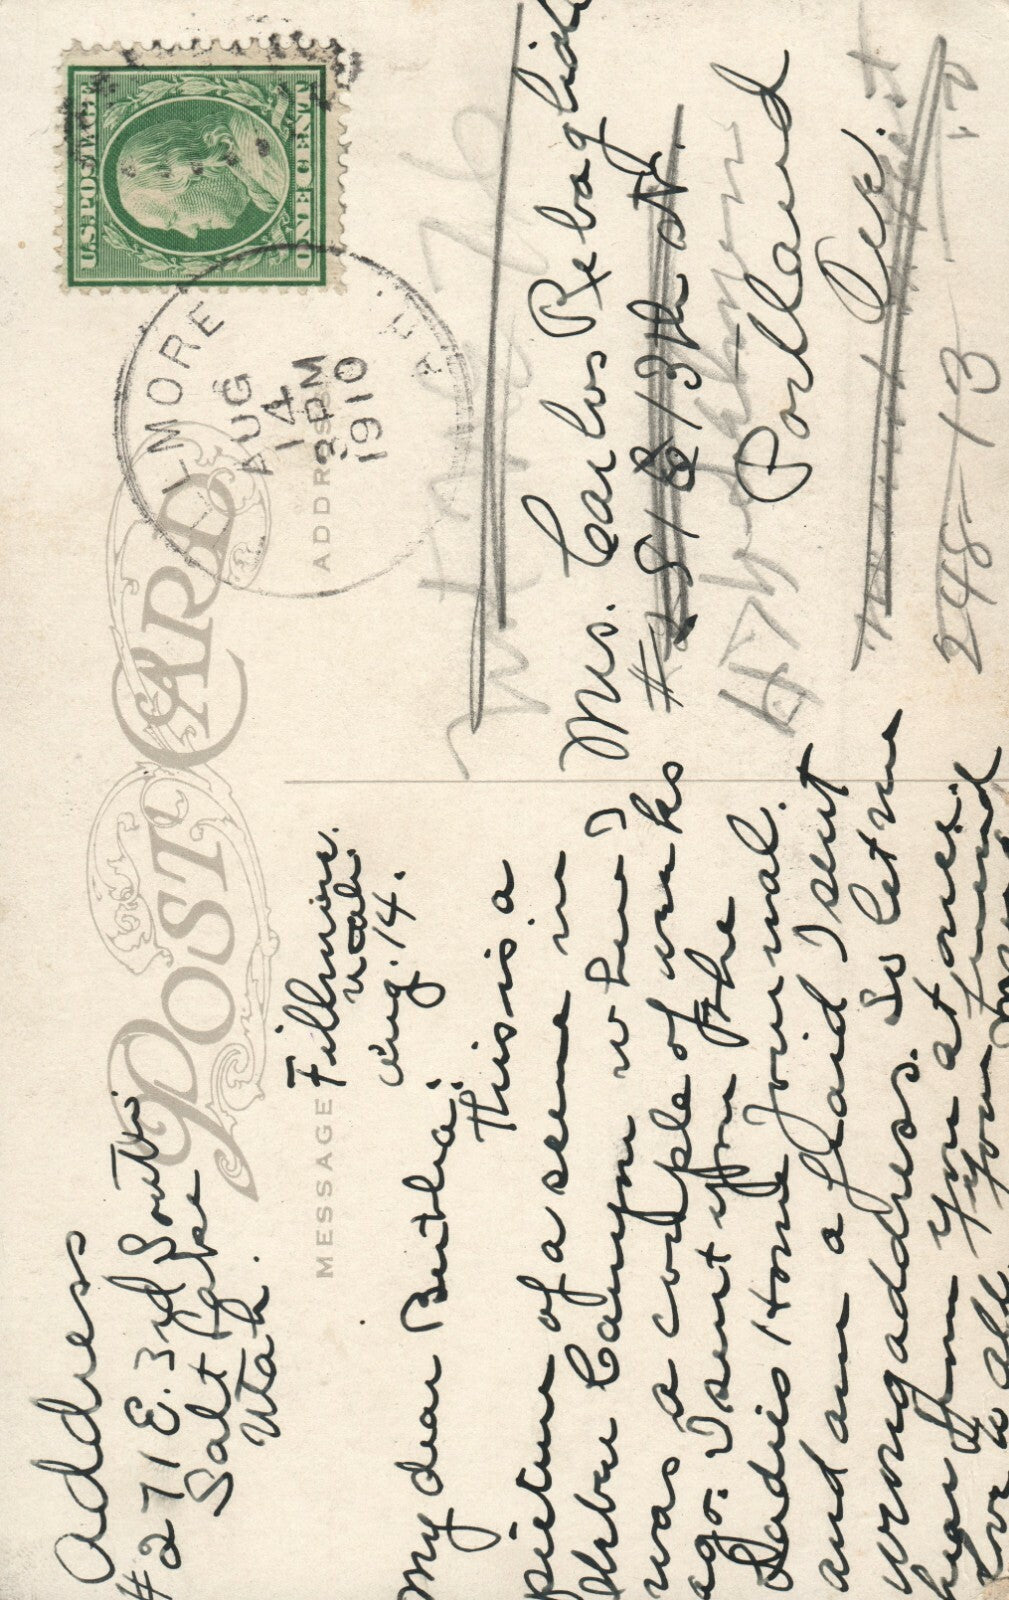 Address
#271 E. 3rd South.
Salt Lake
Utah.
POST CARD
MESSAGE
ADDRESS
U.S. POSTAGE
ONE CENT
LMORE
AUG
14
3 PM
1910
Fillmore.
Utah.
Aug. 14.
My dear Bertha;
This is a
picture of a scene in
Weber Canyon where I
was a couple of weeks
ago. I sent you the
Ladies Home Journal.
and am afraid I sent
wrong address. So let me
hear from you at once.
Love to all Your friend
Mrs. Carlos
# 13th
Portland
Ore.
248-13